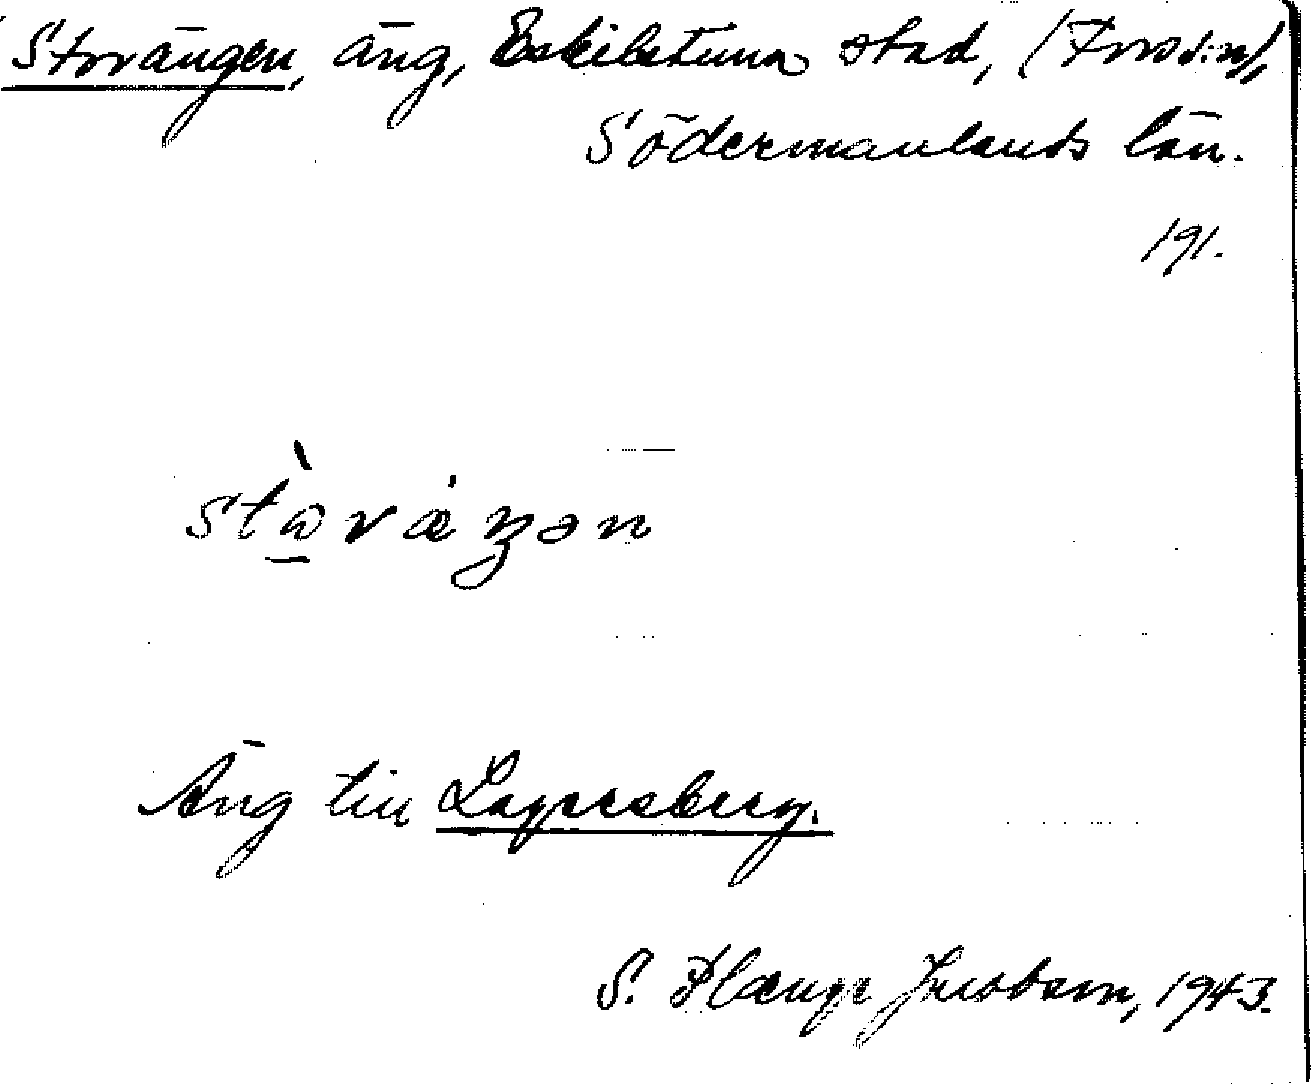 Storängen, äng, Eskilstuna stad, (Fors d:n),
Södermanlands län.
191.
Äng till Lagersberg.
S. Plænge Jacobson, 1943.